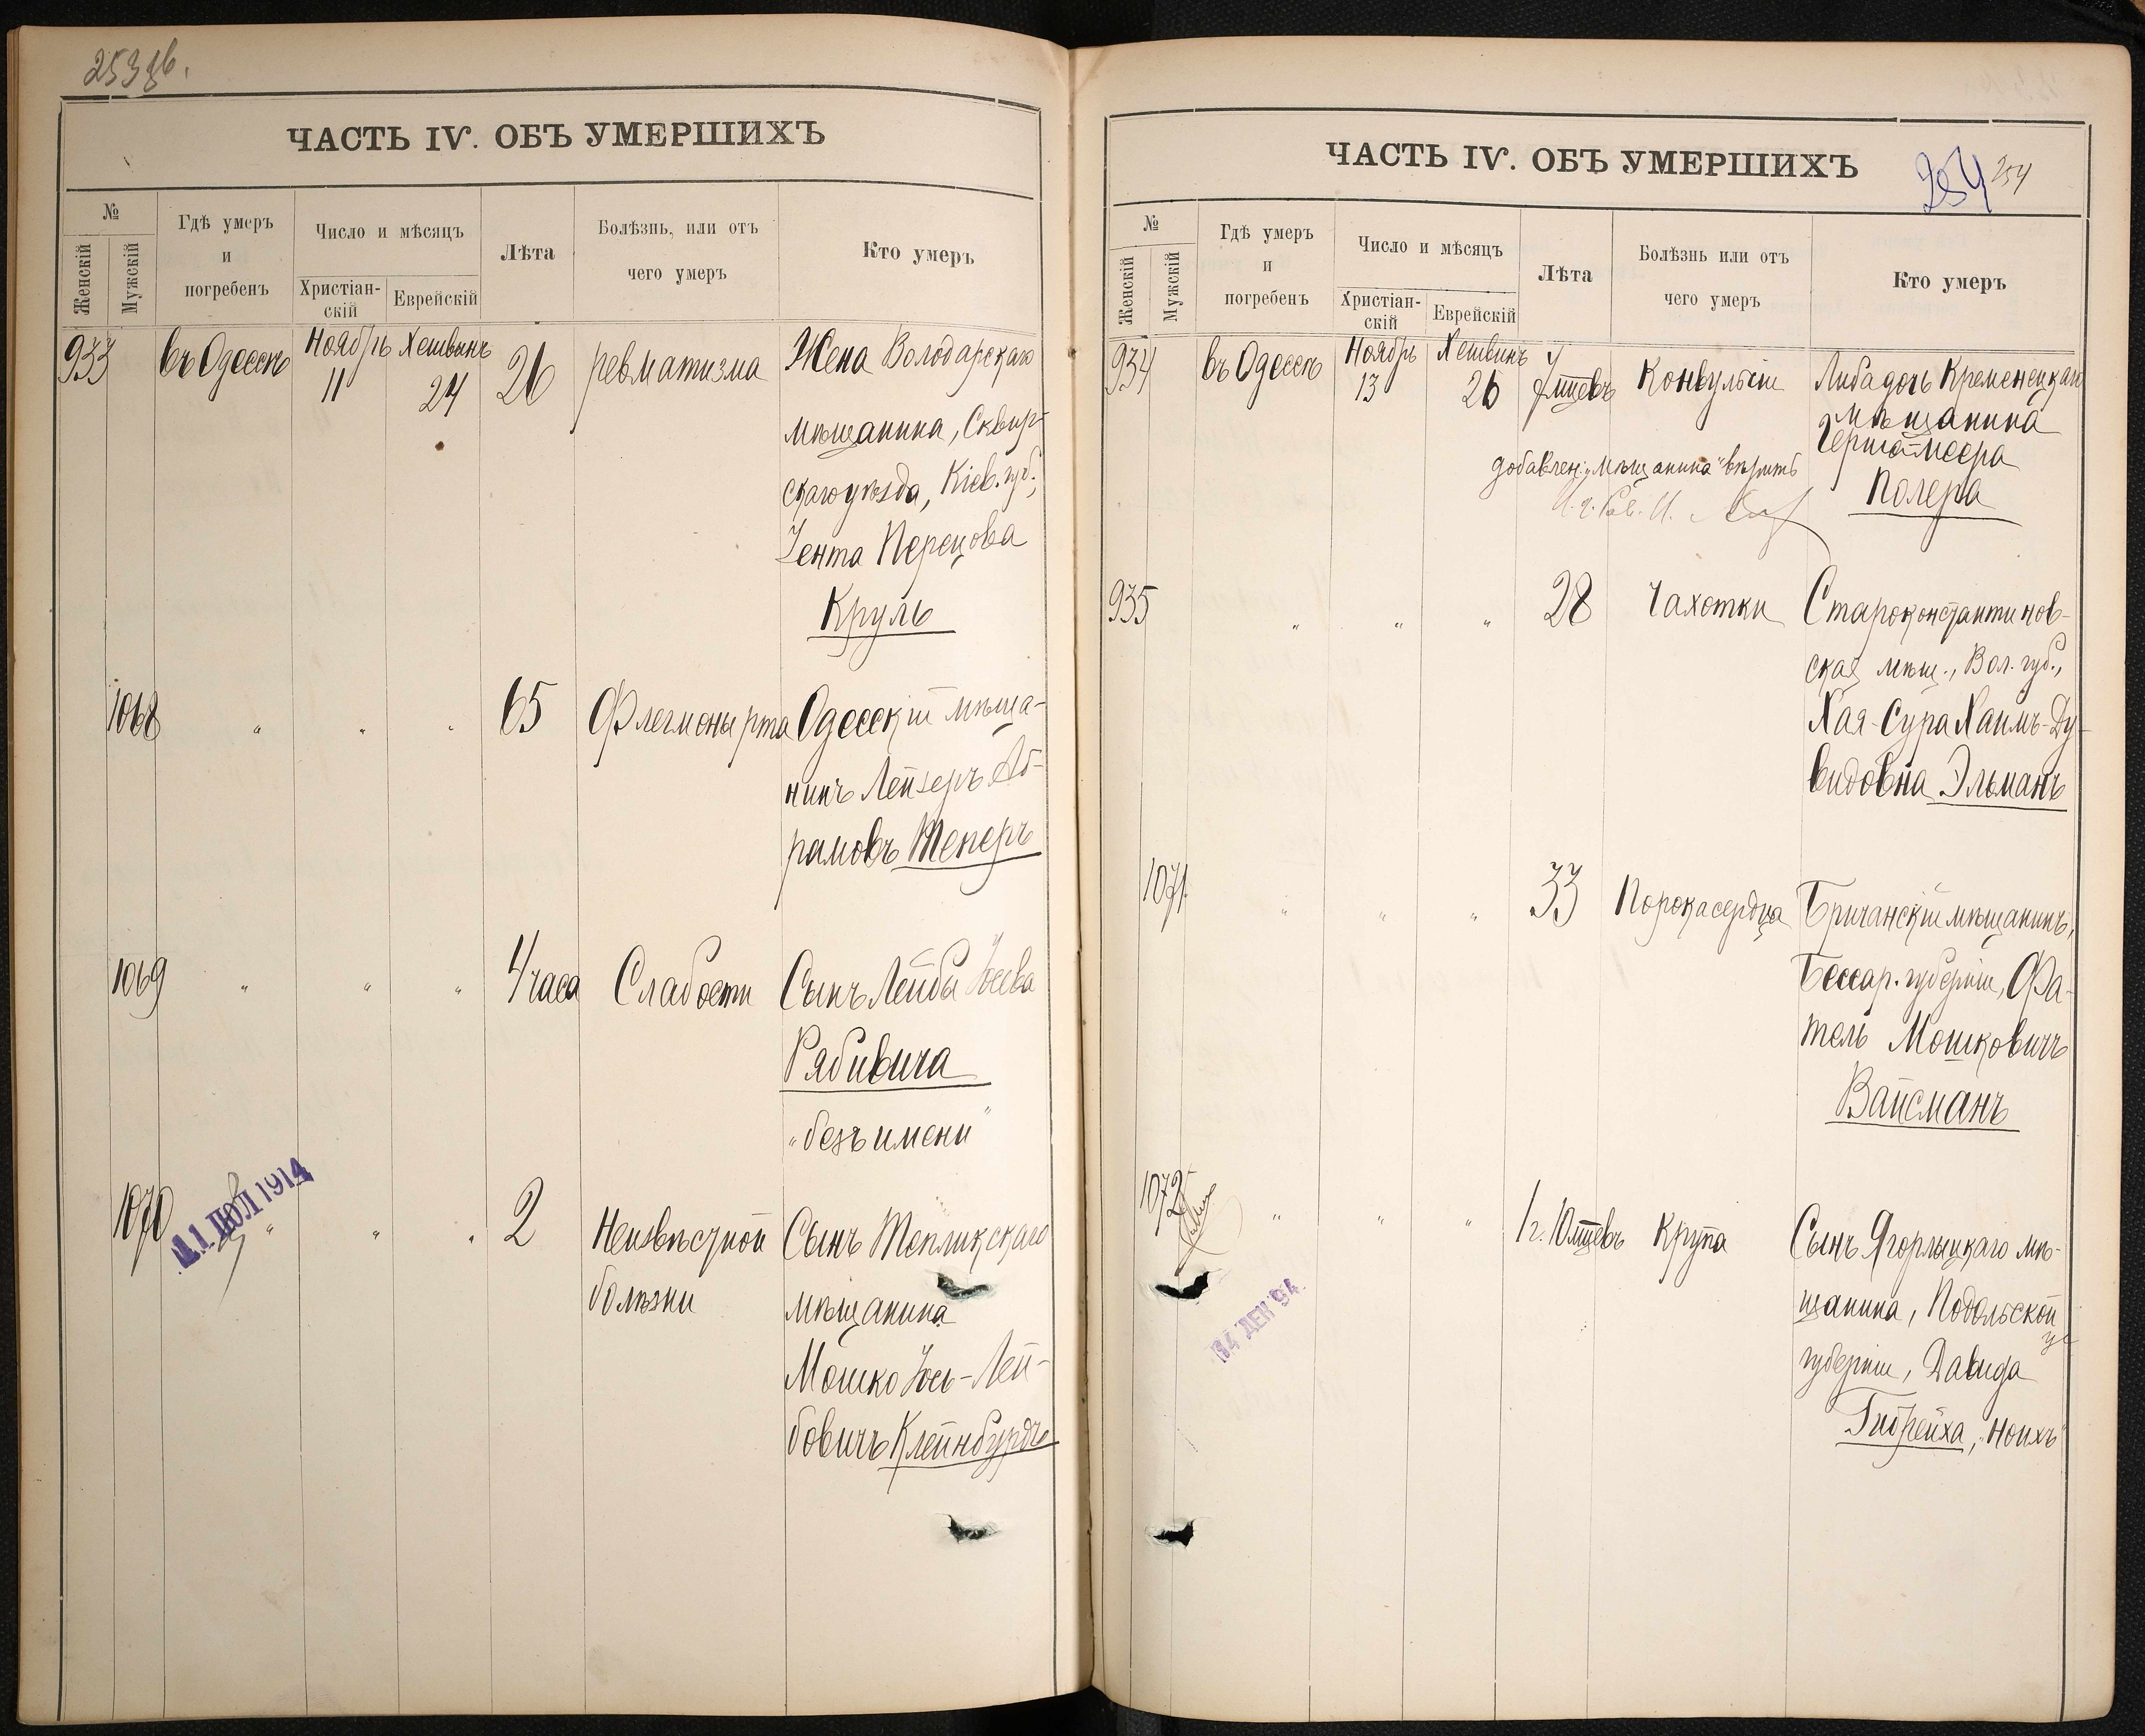 253 об.
ЧАСТЬ IV. ОБЪ УМЕРШИХЪ
№
Женскій
Мужскій
Гдѣ умеръ
и
погребенъ
Число и мѣсяцъ
Христіан-
скій
Еврейскій
Лѣта
Болѣзнь, или отъ
чего умеръ
Кто умеръ
933 въ Одессѣ Ноябрь 11 Хешвинъ 24 26 ревматизма Жена Володарскаго
мѣщанина, Сквир-
скаго уѣзда, Кіев. губ.,
Гента Перецова
Круль
1068 " " " 65 Флегмоны рта Одесскій мѣща-
нинъ Лейзеръ Аб-
рамовъ Тенеръ
1069 " " " 4 часа Слабости Сынъ Лейбы Іосева
Рябивича
"безъ имени"
1070 " " " 2 Неизвѣстной Сынъ Тепликскаго
болѣзни мѣщанина
Мошко Іось-Лей-
бовичъ Клейнбурдъ
11 ІЮЛ 1914
ЧАСТЬ IV. ОБЪ УМЕРШИХЪ
254 254
№
Женскій
Мужскій
Гдѣ умеръ
и
погребенъ
Число и мѣсяцъ
Христіан-
скій
Еврейскій
Лѣта
Болѣзнь или отъ
чего умеръ
Кто умеръ
934 въ Одессѣ Ноябрь 13 Хешвинъ 26 мцевъ Конвульсіи Либа дочь Кременецкаго
мѣщанина
Герша-Меера
добавлен: "мѣщанина" вѣрить
Полера
935 " " " 28 Чахотки Староконстантинов-
ская мѣщ., Вол. губ.,
Хая-Сура Хаимъ-Ду-
видовна Эльманъ
1071. " " " 33 Порока сердца Бричанскій мѣщанинъ,
Бессар. губерніи, Фа-
тель Мошковичъ
Вайсманъ
1072 " " " 1 г. 10 мцевъ Крупа Сынъ Ягорлыцкаго мѣ-
щанина, Подольской
губерніи, Давида
Гибрейха, "Ноихъ"
14 ДЕК 94